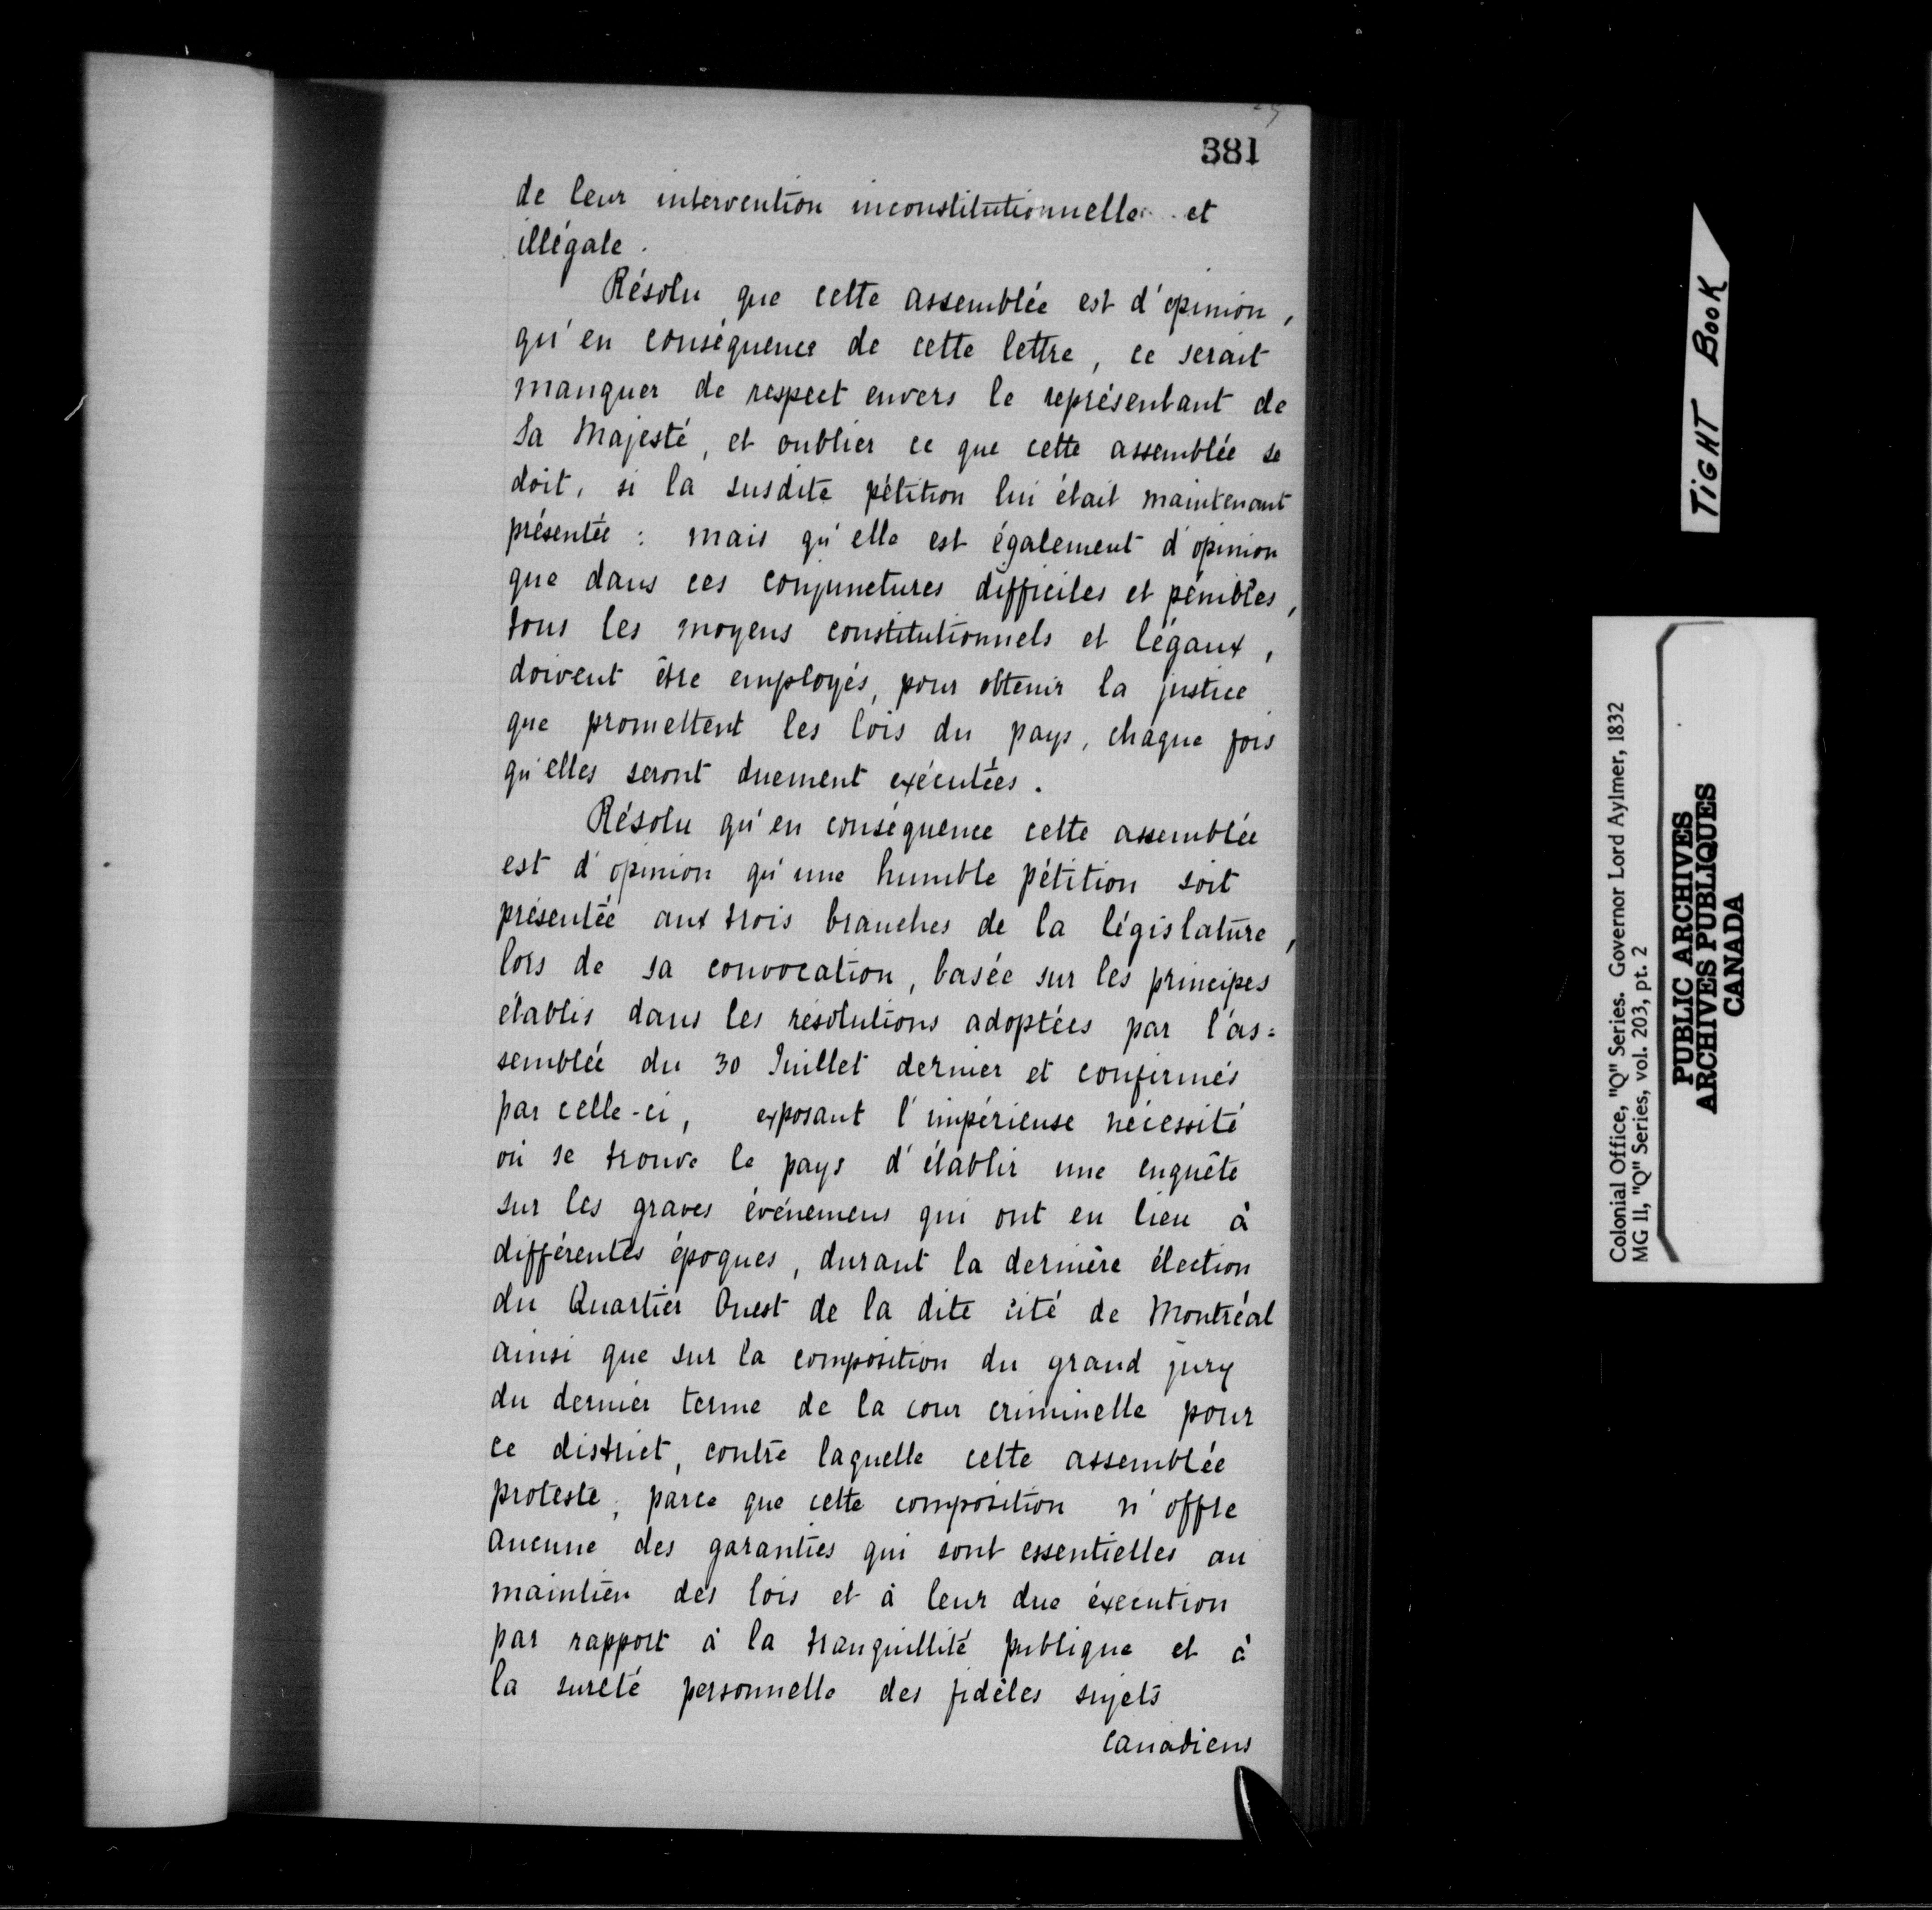 381
de leur intervention inconstitutionnelle et
illégale.
Résolu que cette assemblée est d'opinion,
qu'en conséquence de cette lettre, ce serait
manquer de respect envers le représentant de
Sa Majesté, et oublier ce que cette assemblée se
doit, si la susdite pétition lui était maintenant
présentée : mais qu'elle est également d'opinion
que dans ces conjunctures difficiles et pénibles,
tous les moyens constitutionnels et légaux,
doivent être employés, pour obtenir la justice
que promettent les lois du pays, chaque fois
qu'elles seront duement exécutées.
Résolu qu'en conséquence cette assemblée
est d'opinion qu'une humble pétition soit
présentée aux trois branches de la législature,
lors de sa convocation, basée sur les principes
établis dans les résolutions adoptées par l'as=
semblée du 30 Juillet dernier et confirmés
par celle-ci, exposant l'impérieuse nécessité
où se trouve le pays d'établir une enquête
sur les graves événemens qui ont eu lieu à
différentes époques, durant la dernière élection
du Quartier Ouest de la dite cité de Montréal
ainsi que sur la composition du grand jury
du dernier terme de la cour criminelle pour
ce district, contre laquelle cette assemblée
proteste; parce que cette composition n'offre
aucune des garanties qui sont essentielles au
maintien des lois et à leur due éxecution
par rapport à la tranquillité publique et à
la sureté personnelle des fidèles sujets
Canadiens
TIGHT BOOK
Colonial Office, "Q" Series. Governor Lord Aylmer, 1832
MG 11, "Q" Series, vol. 203, pt. 2
PUBLIC ARCHIVES
ARCHIVES PUBLIQUES
CANADA